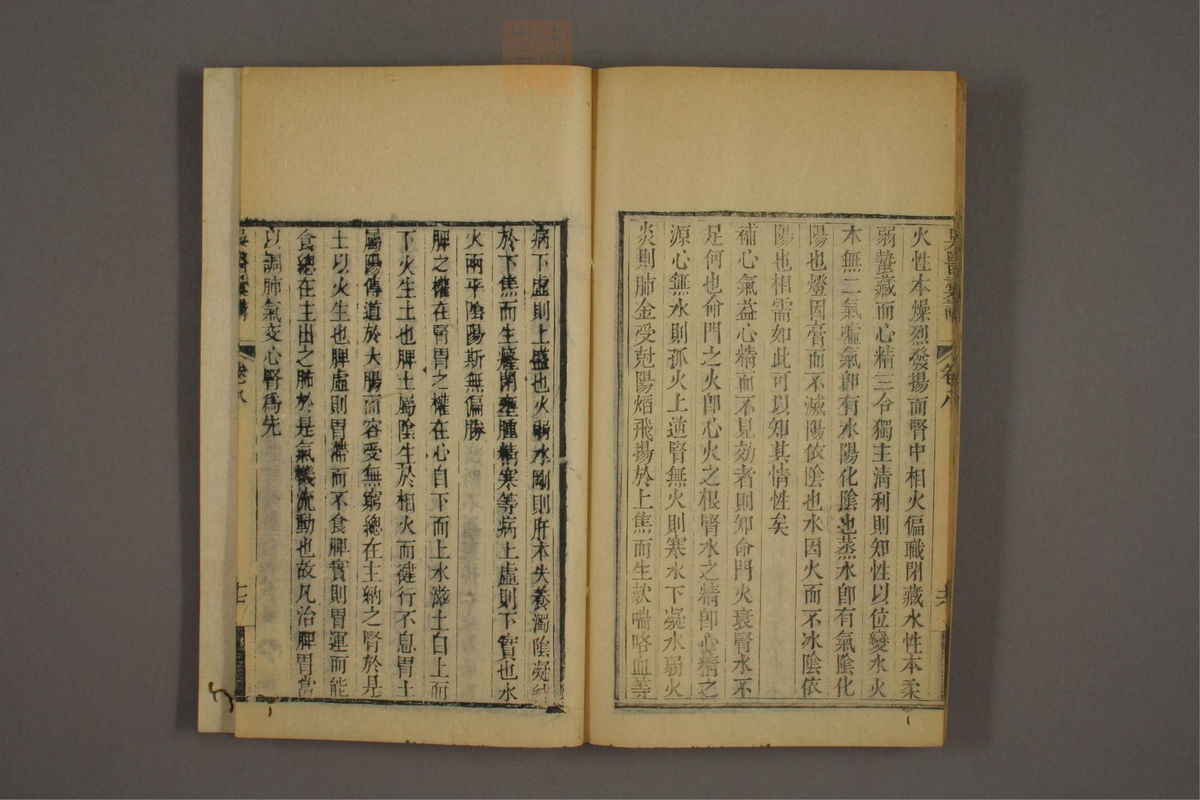 火性本燥烈發揚而腎中相火偏職閉藏水性本柔
弱蟄藏而心精三合獨主淸利則知性以位變水火
本無二氣噓氣卽有水陽化陰也蒸水卽有氣陰化
陽也燈因膏而不滅陽依陰也水因火而不冰陰依
陽也相需如此可以知其情性矣
補心氣益心精而不見効者則知命門火衰腎水不
足何也命門之火卽心火之根腎水之精卽心精之
源心無水則孤火上逆腎無火則寒水下凝水弱火
炎則肺金受尅陽熖飛揚於上焦而生欬喘咯血等
病下虛則上盛也火弱水剛則肝木失養濁陰凝結
於下焦而生癃閉壅腫精寒等病上虛則下實也水
火兩平陰陽斯無偏勝
脾之權在腎胃之權在心自下而上水滋土自上而
下火生土也脾土屬陰生於相火而健行不息胃土
屬陽傳道於大腸而容受無窮總在主納之腎於是
土以火生也脾虛則胃滯而不食脾實則胃運而能
食總在主出之肺於是氣機流動也故凡治脾胃當
以調肺氣交心腎爲先
吳醫彙講 卷八